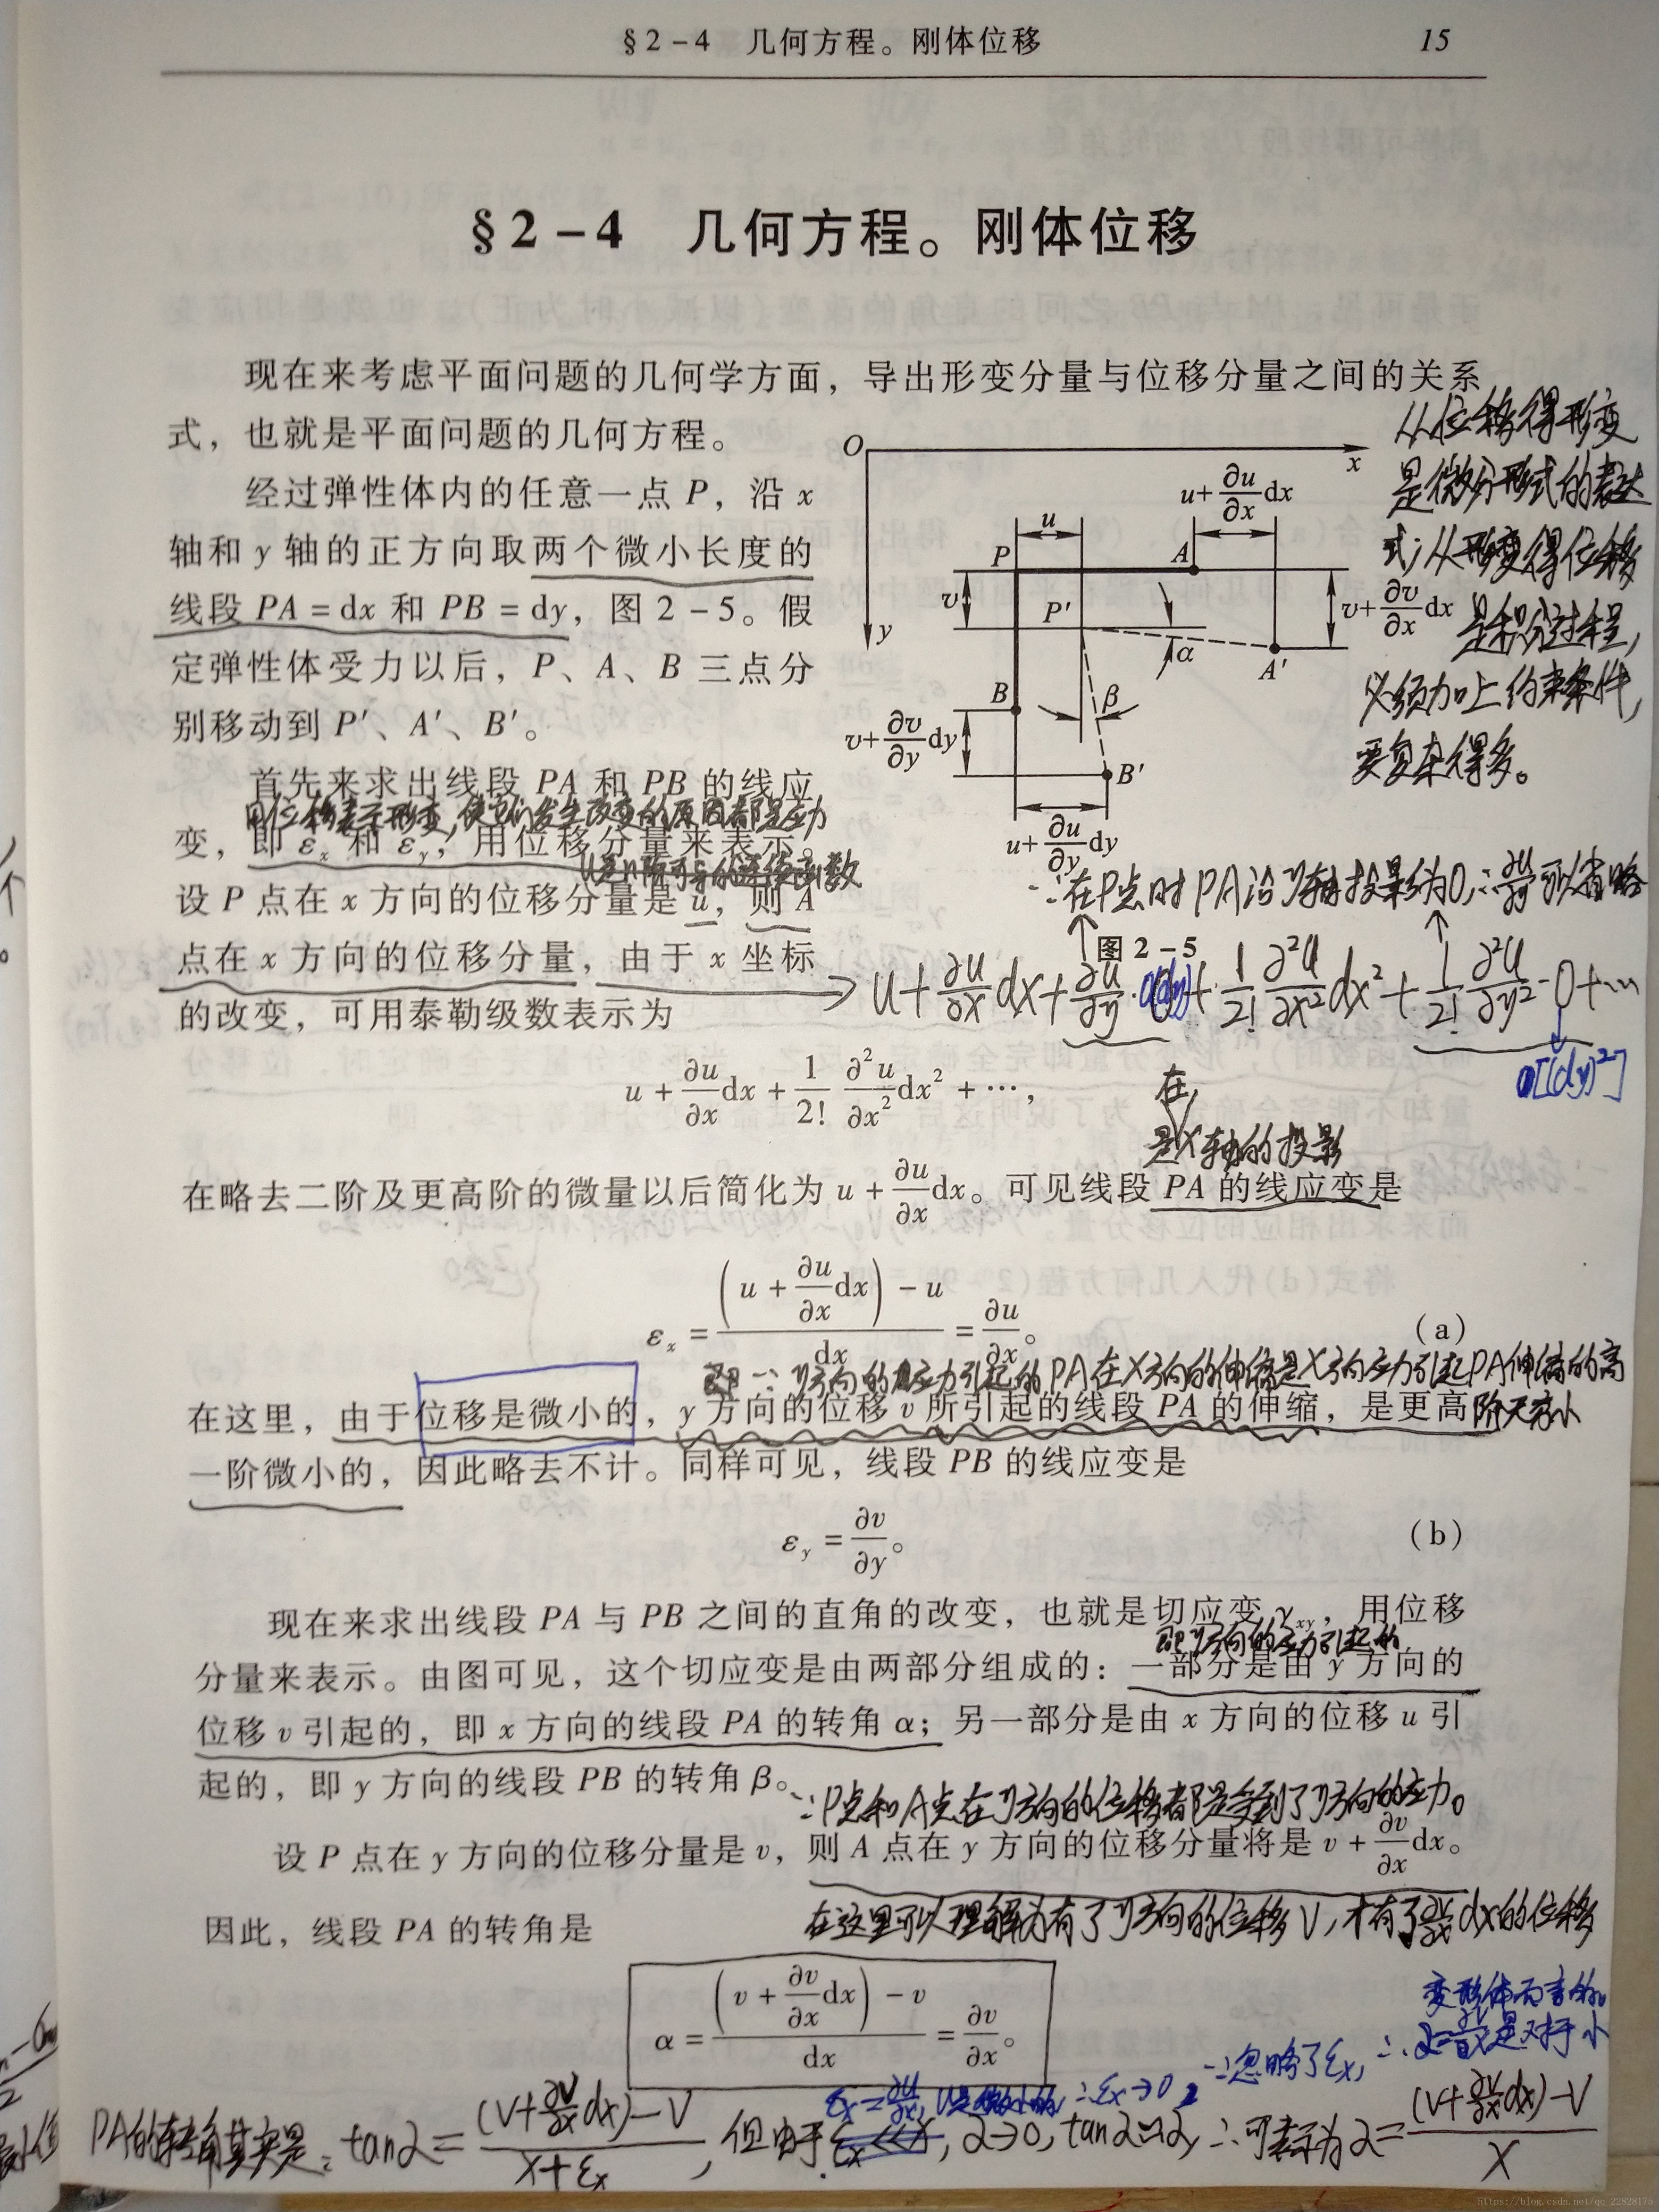 §2-4 几何方程。刚体位移 15
§2-4 几何方程。刚体位移
现在来考虑平面问题的几何学方面，导出形变分量与位移分量之间的关系
式，也就是平面问题的几何方程。
经过弹性体内的任意一点 P，沿 x
轴和 y 轴的正方向取两个微小长度的
线段 PA = dx 和 PB = dy，图 2-5。假
定弹性体受力以后，P、A、B 三点分
别移动到 P′、A′、B′。
首先来求出线段 PA 和 PB 的线应
用位移表示形变，使它们发生改变的原因都是应力
变，即 εx 和 εy，用位移分量来表示。
U是n阶可导的连续函数
设 P 点在 x 方向的位移分量是 u，则 A
点在 x 方向的位移分量，由于 x 坐标
的改变，可用泰勒级数表示为
O x
u+∂u/∂x dx
u
P A
v P′ v+∂v/∂x dx
y
α A′
B β
v+∂v/∂y dy
B′
u+∂u/∂y dy
图 2-5
从位移得形变
是微分形式的表达
式；从形变得位移
是积分过程，
必须加上约束条件，
要复杂得多。
∵在P点时PA沿y轴投影为0，∴∂u/∂y可以省略
→ u+∂u/∂x dx+∂u/∂y·0(dy)+1/2! ∂²u/∂x² dx²+1/2! ∂²u/∂y²·0+…
0[(dy)²]
u + ∂u/∂x dx + 1/2! ∂²u/∂x² dx² + …,
在
是X轴的投影
在略去二阶及更高阶的微量以后简化为 u + ∂u/∂x dx。可见线段 PA 的线应变是
εx = ((u + ∂u/∂x dx) - u)/dx = ∂u/∂x。 (a)
即∵y方向的应力引起的PA在X方向的伸缩是X方向应力引起PA伸缩的高
在这里，由于位移是微小的，y 方向的位移 v 所引起的线段 PA 的伸缩，是更高阶无穷小
一阶微小的，因此略去不计。同样可见，线段 PB 的线应变是
εy = ∂v/∂y。 (b)
现在来求出线段 PA 与 PB 之间的直角的改变，也就是切应变 γxy，用位移
即y方向的应力引起的
分量来表示。由图可见，这个切应变是由两部分组成的：一部分是由 y 方向的
位移 v 引起的，即 x 方向的线段 PA 的转角 α；另一部分是由 x 方向的位移 u 引
起的，即 y 方向的线段 PB 的转角 β。
∵P点和A点在y方向的位移都是受到了y方向的应力。
设 P 点在 y 方向的位移分量是 v，则 A 点在 y 方向的位移分量将是 v + ∂v/∂x dx。
在这里可以理解为有了y方向的位移V，才有了∂v/∂x dx的位移
因此，线段 PA 的转角是
α = ((v + ∂v/∂x dx) - v)/dx = ∂v/∂x。
变形体而言的。
∵忽略了εx，∴α=∂v/∂x是对于小
εx=∂u/∂x，U是微小的 ∴εx→0，
PA的转角其实是：tanα=((V+∂V/∂x dx)-V)/(X+εx)，但由于εx≪X，α→0，tanα≈α，∴可表示为α=((V+∂V/∂x dx)-V)/X
https://blog.csdn.net/qq_22828175